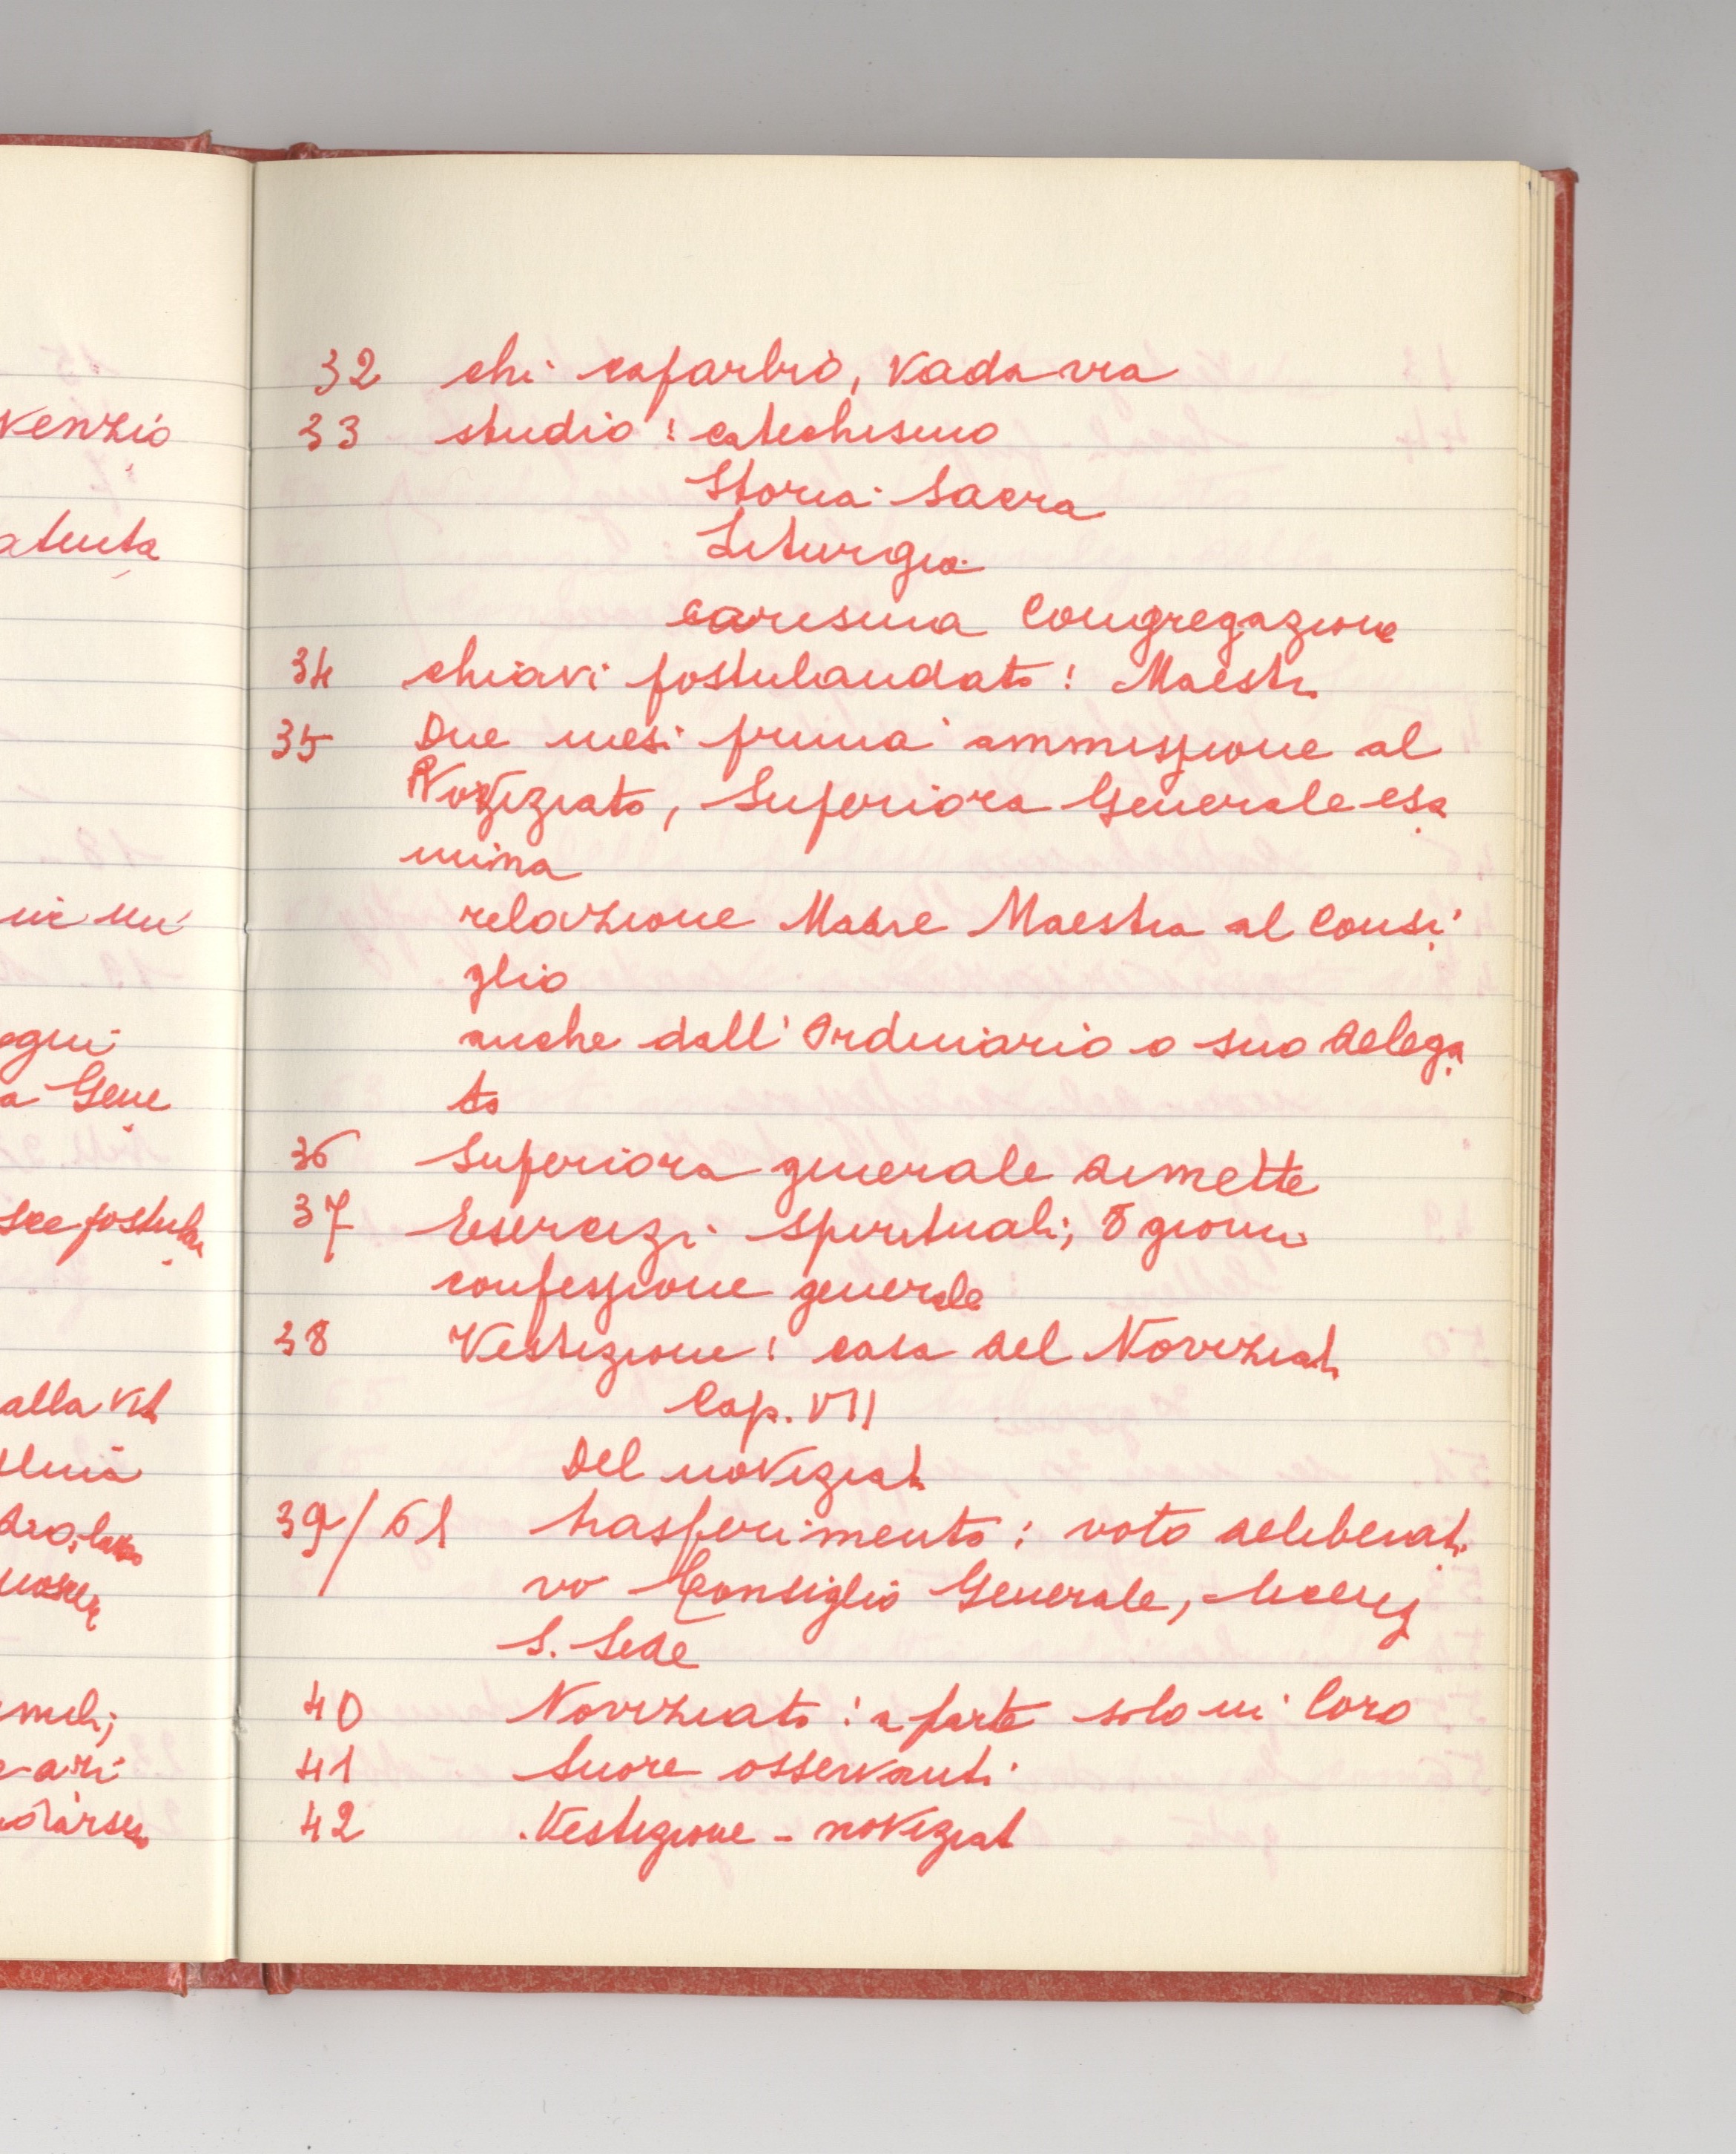 venzio
atuta
ni un
ogni
a Gene
sce postula
alla vit
32 chi caparbio, vada via
33 studio: catechismo
Storia Sacra
Liturgia
carisma Congregazione
34 chiavi postulandato: Maestr
35 Due mesi prima ammissione al
Noviziato, Superiora Generale esa
mina
relazione Madre Maestra al Consi
glio
anche dall'Ordinario o suo delega
to
36 Superiora generale dimette
37 Esercizi spirituali; 8 giorni
confessione generale
38 Vestizione: casa del Noviziat
Cap. VII
Del noviziat
39/61 trasferimento: voto deliberati
vo Consiglio Generale, licenz
S. Sede
40 Noviziato: a parte solo in Coro
41 Suore osservanti
42 Vestizione - noviziat